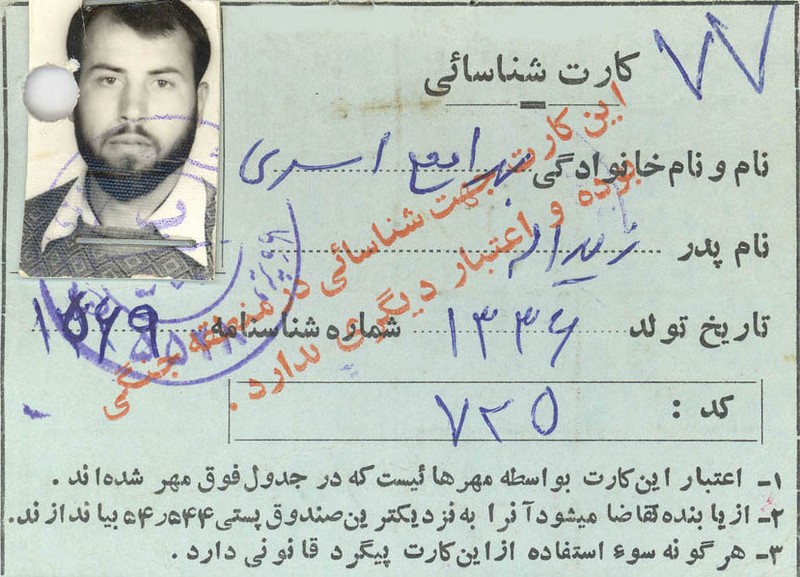 کارت شناسائی
۷۷
نام و نام خانوادگی
نام پدر
تاریخ تولد ۱۳۳۶ شماره شناسنامه ۱۵۶۹
کد : ۷۲۵
این کارت جهت شناسائی در منطقه جنگی
بوده و اعتبار دیگری ندارد .
۱ـ اعتبار این کارت بواسطه مهرهائیست که در جدول فوق مهر شده‌اند .
۲ـ از یابنده تقاضا میشود آنرا به نزدیکترین صندوق پستی ۵۴۴ر۵۴ بیاندازند.
۳ـ هرگونه سوء استفاده از این کارت پیگرد قانونی دارد .